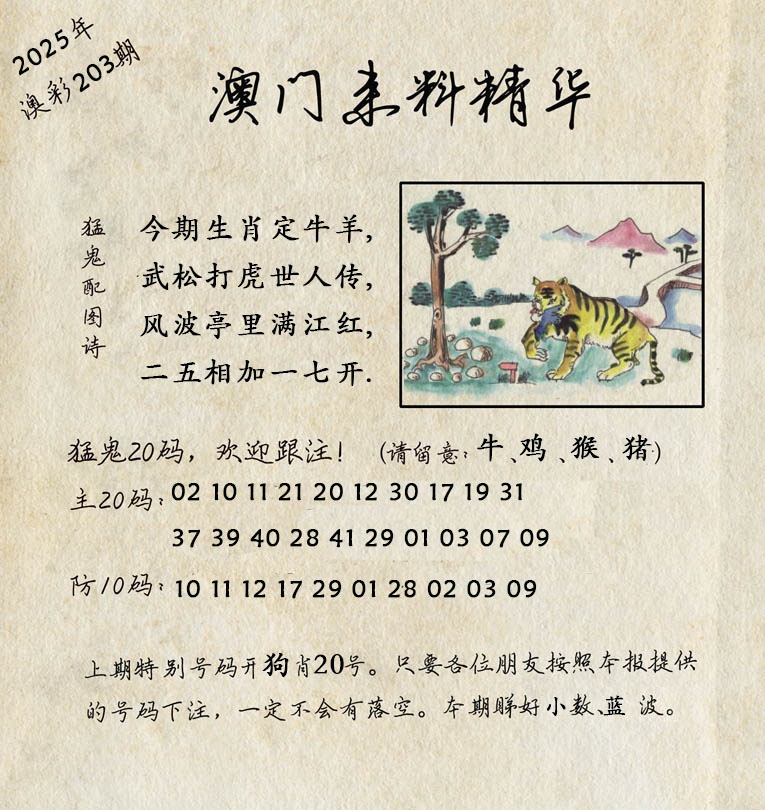 2025年
澳彩203期
澳门来料精华
猛鬼配图诗
今期生肖定牛羊,
武松打虎世人传,
风波亭里满江红,
二五相加一七开.
猛鬼20码，欢迎跟注！（请留意：牛、鸡、猴、猪）
主20码：02 10 11 21 20 12 30 17 19 31
37 39 40 28 41 29 01 03 07 09
防10码：10 11 12 17 29 01 28 02 03 09
上期特别号码开狗肖20号。只要各位朋友按照本报提供
的号码下注，一定不会有落空。本期睇好小数、蓝 波。